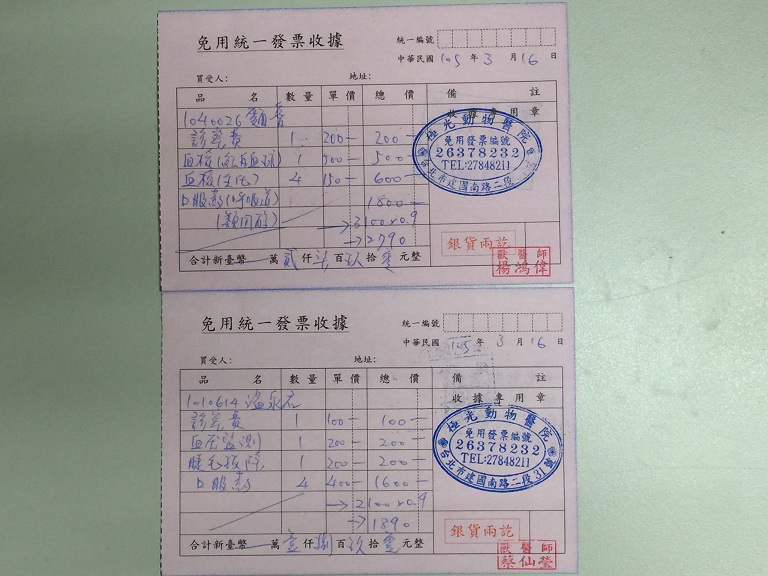 免用統一發票收據
統一編號
中華民國 105 年 3 月 16 日
買受人： 地址：
品 名 數量 單價 總價 備 註
收據專用章
1040026
診察費 1 200- 200-
極光動物醫院
免用發票編號
26378232
TEL:27848211
台北市建國南路二段
血檢( ) 1 500- 500-
血檢(生化) 4 150- 600-
口服藥(呼吸道) 1800-
(類固醇) →3100x0.9
→2790
銀貨兩訖
合計新臺幣 萬 貳 仟 柒 百 玖 拾 零 元整
獸醫師
楊鴻偉
免用統一發票收據
統一編號
中華民國 105 年 3 月 16 日
買受人： 地址：
品 名 數量 單價 總價 備 註
收據專用章
1010614
診察費 1 100- 100-
極光動物醫院
免用發票編號
26378232
TEL:27848211
台北市建國南路二段31號
血壓監測 1 200- 200-
睫毛拔除 1 200- 200-
口服藥 4 400- 1600-
→2100x0.9
→1890
銀貨兩訖
合計新臺幣 萬 壹 仟 捌 百 玖 拾 零 元整
獸醫師
蔡仙瑩